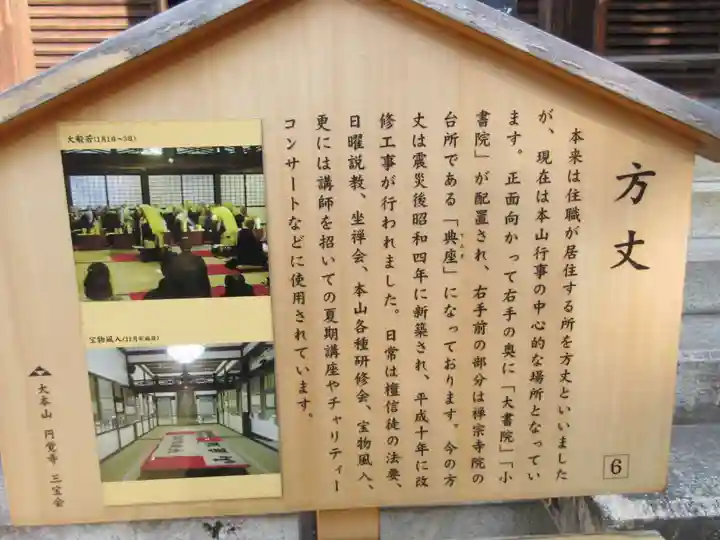 方丈
本来は住職が居住する所を方丈といいました
が、現在は本山行事の中心的な場所となってい
ます。正面向かって右手の奥に「大書院」「小
書院」が配置され、右手前の部分は禅宗寺院の
台所である「典座」になっております。今の方
てんぞ
丈は震災後昭和四年に新築され、平成十年に改
修工事が行われました。日常は檀信徒の法要、
日曜説教、坐禅会、本山各種研修会、宝物風入、
更には講師を招いての夏期講座やチャリティー
コンサートなどに使用されています。
6
大般若(1月1日〜3日)
宝物風入(11月初旬頃)
大本山 円覚寺 三宝会